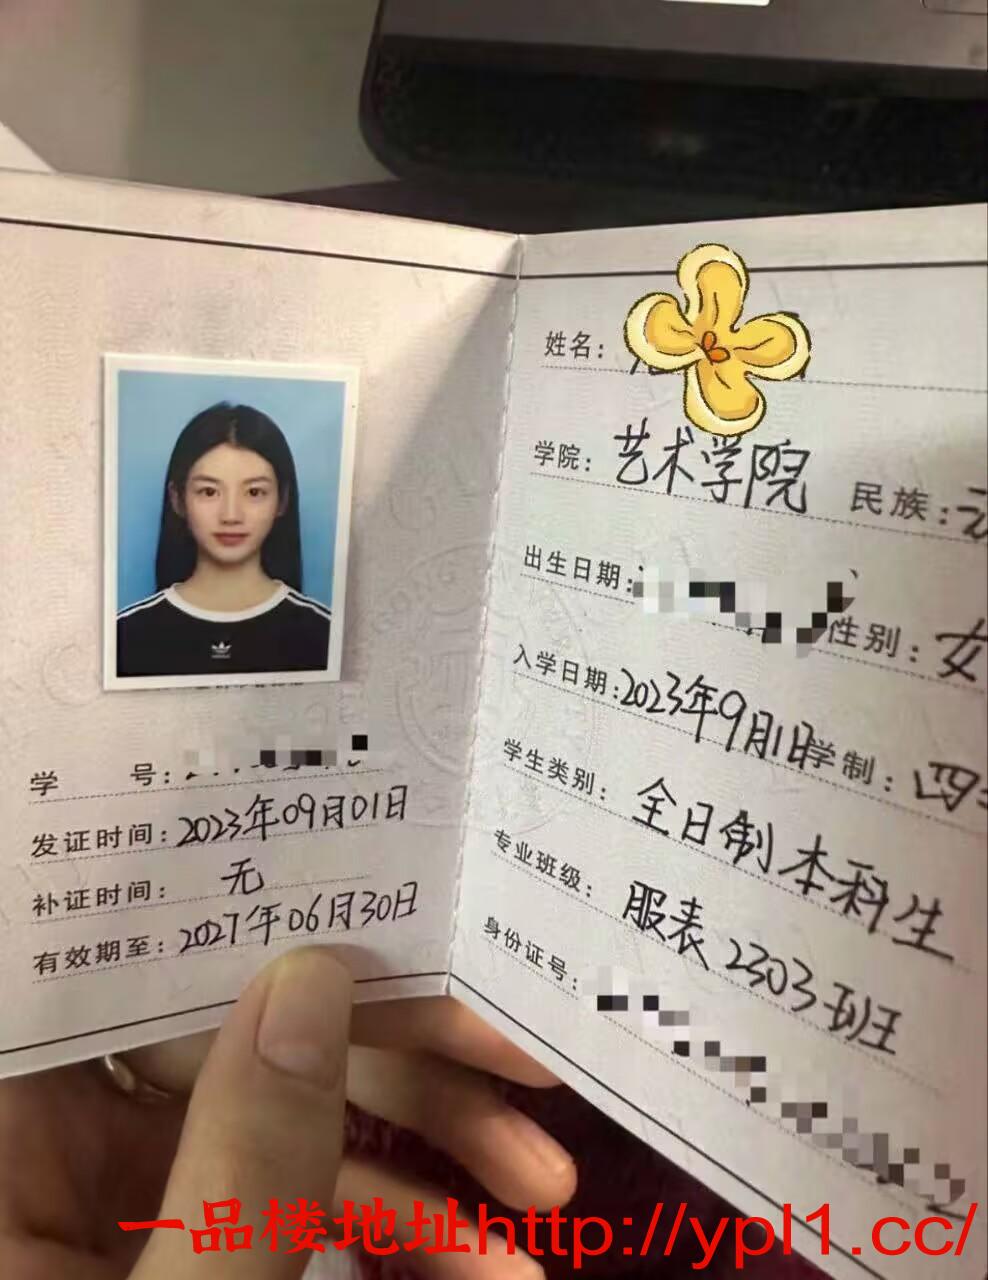 学 号：
发证时间：2023年09月01日
补证时间：无
有效期至：2027年06月30日
姓名：
学院：艺术学院 民族：
出生日期： 性别：女
入学日期：2023年9月1日 学制：四
学生类别：全日制本科生
专业班级：服表2303班
身份证号：
一品楼地址http://ypl1.cc/